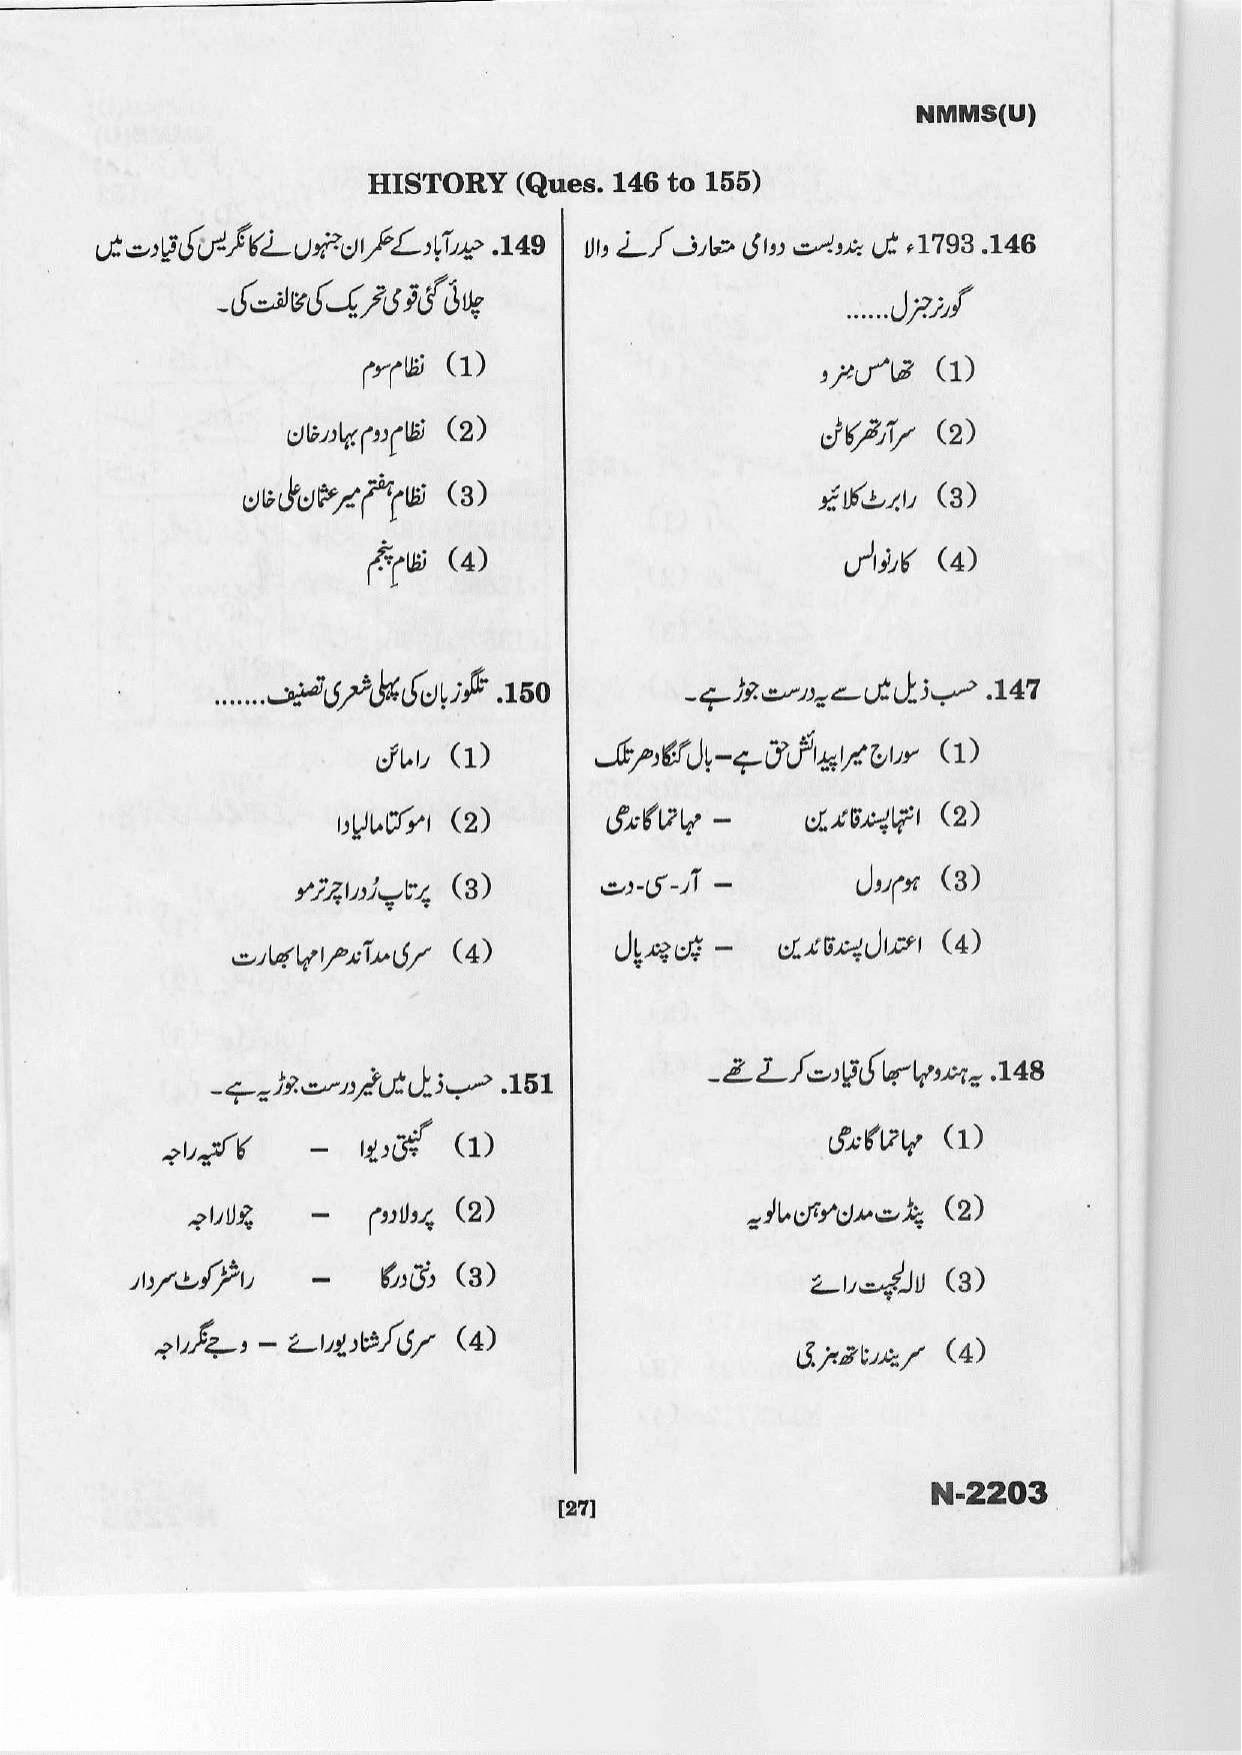 NMMS(U)
HISTORY (Ques. 146 to 155)
146. 1793ء میں بندوبست دوامی متعارف کرنے والا
گورنر جنرل......
(1) تھامس منرو
(2) سر آرتھر کاٹن
(3) رابرٹ کلائیو
(4) کارنوالس
147. حسب ذیل میں سے یہ درست جوڑ ہے۔
(1) سوراج میرا پیدائش حق ہے – بال گنگا دھر تلک
(2) انتہا پسند قائدین – مہاتما گاندھی
(3) ہوم رول – آر-سی-دت
(4) اعتدال پسند قائدین – بپن چند پال
148. یہ ہندو مہا سبھا کی قیادت کرتے تھے۔
(1) مہاتما گاندھی
(2) پنڈت مدن موہن مالویہ
(3) لالہ لجپت رائے
(4) سریندر ناتھ بنرجی
149. حیدرآباد کے حکمران جنہوں نے کانگریس کی قیادت میں
چلائی گئی قومی تحریک کی مخالفت کی۔
(1) نظام سوم
(2) نظامِ دوم بہادر خان
(3) نظامِ ہفتم میر عثمان علی خان
(4) نظامِ پنجم
150. تلگو زبان کی پہلی شعری تصنیف.......
(1) رامائن
(2) اموکتا مالیادا
(3) پرتاپ رُدرا چرترمو
(4) سری مد آندھرا مہا بھارت
151. حسب ذیل میں غیر درست جوڑ یہ ہے۔
(1) گنپتی دیوا – کاکتیہ راجہ
(2) پرولا دوم – چولا راجہ
(3) دنتی درگا – راشٹر کوٹ سردار
(4) سری کرشنا دیورائے – وجے نگر راجہ
[27]
N-2203